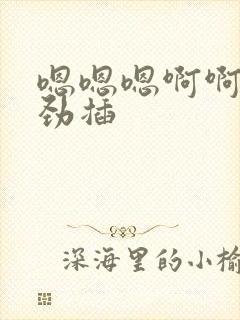 嗯嗯嗯啊啊
劲插
深海里的小榆